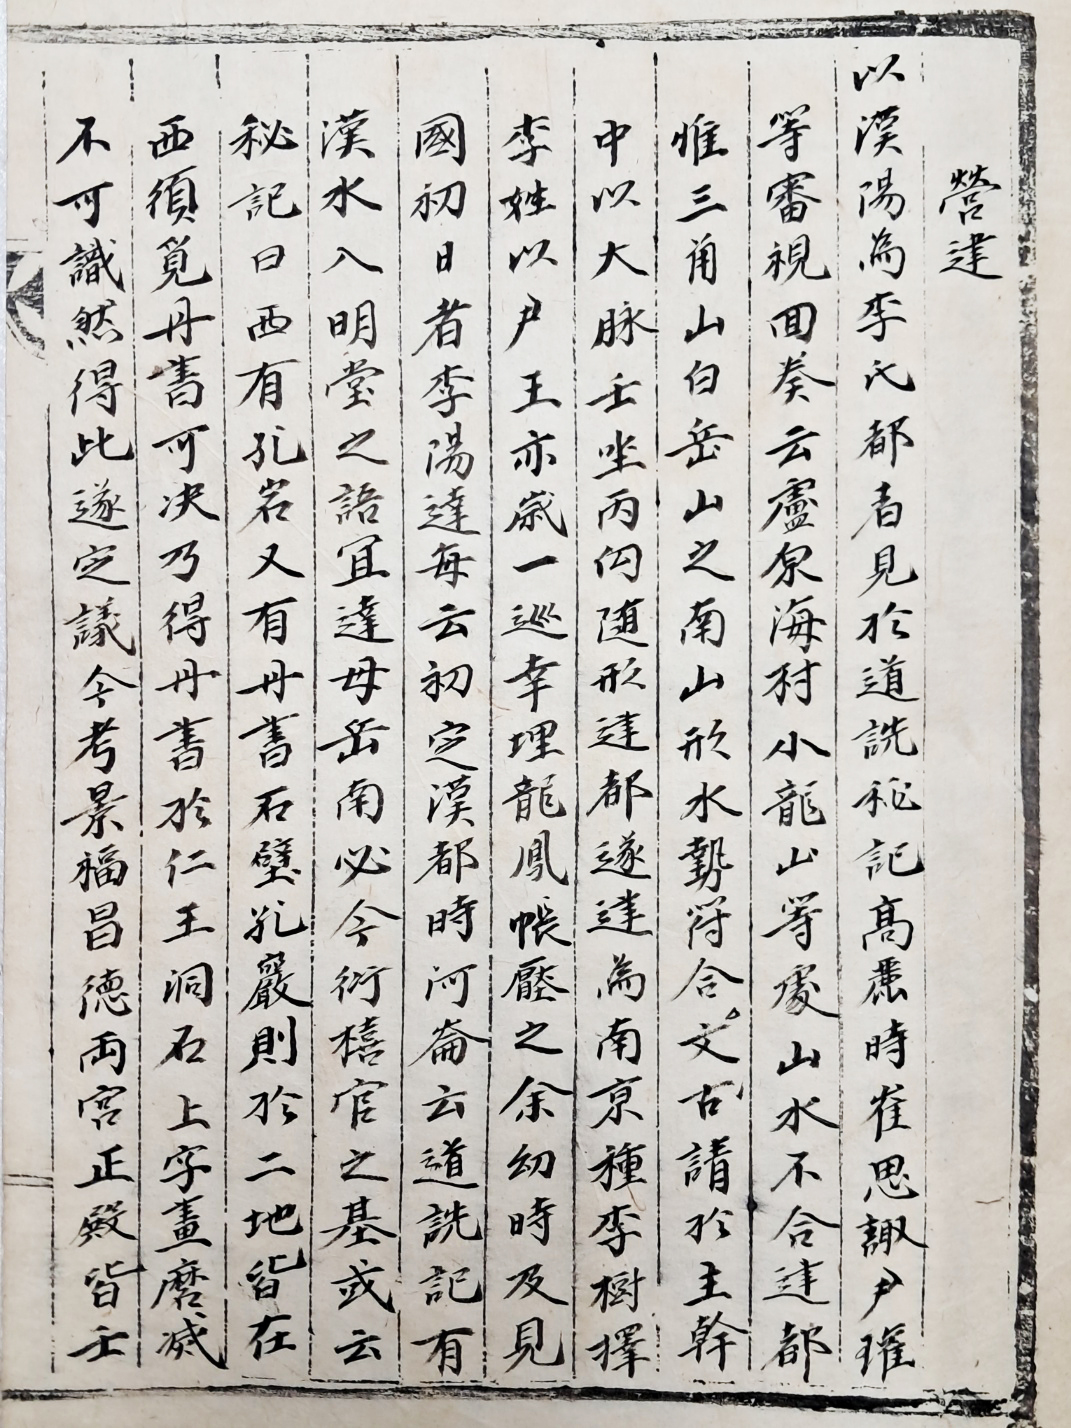 營建
以漢陽為李氏都者見於道詵秘記高麗時崔思諏尹瓘
等審視回奏云盧原海村小龍山等處山水不合建都
惟三角山白岳山之南山形水勢符合文古請於主幹
中以大脉壬坐丙向随形建都遂建為南京種李樹擇
李姓以尹王亦歲一巡幸埋龍鳳帳壓之余幼時及見
國初日者李陽達每云初定漢都時河崙云道詵記有
漢水入明堂之語宜達母岳南必今衍禧宮之基或云
秘記曰西有孔岩又有丹書石壁孔巖則於二地皆在
西須覓丹書可决乃得丹書於仁王洞石上字畫磨滅
不可識然得此遂定議今考景福昌德両宮正殿皆壬